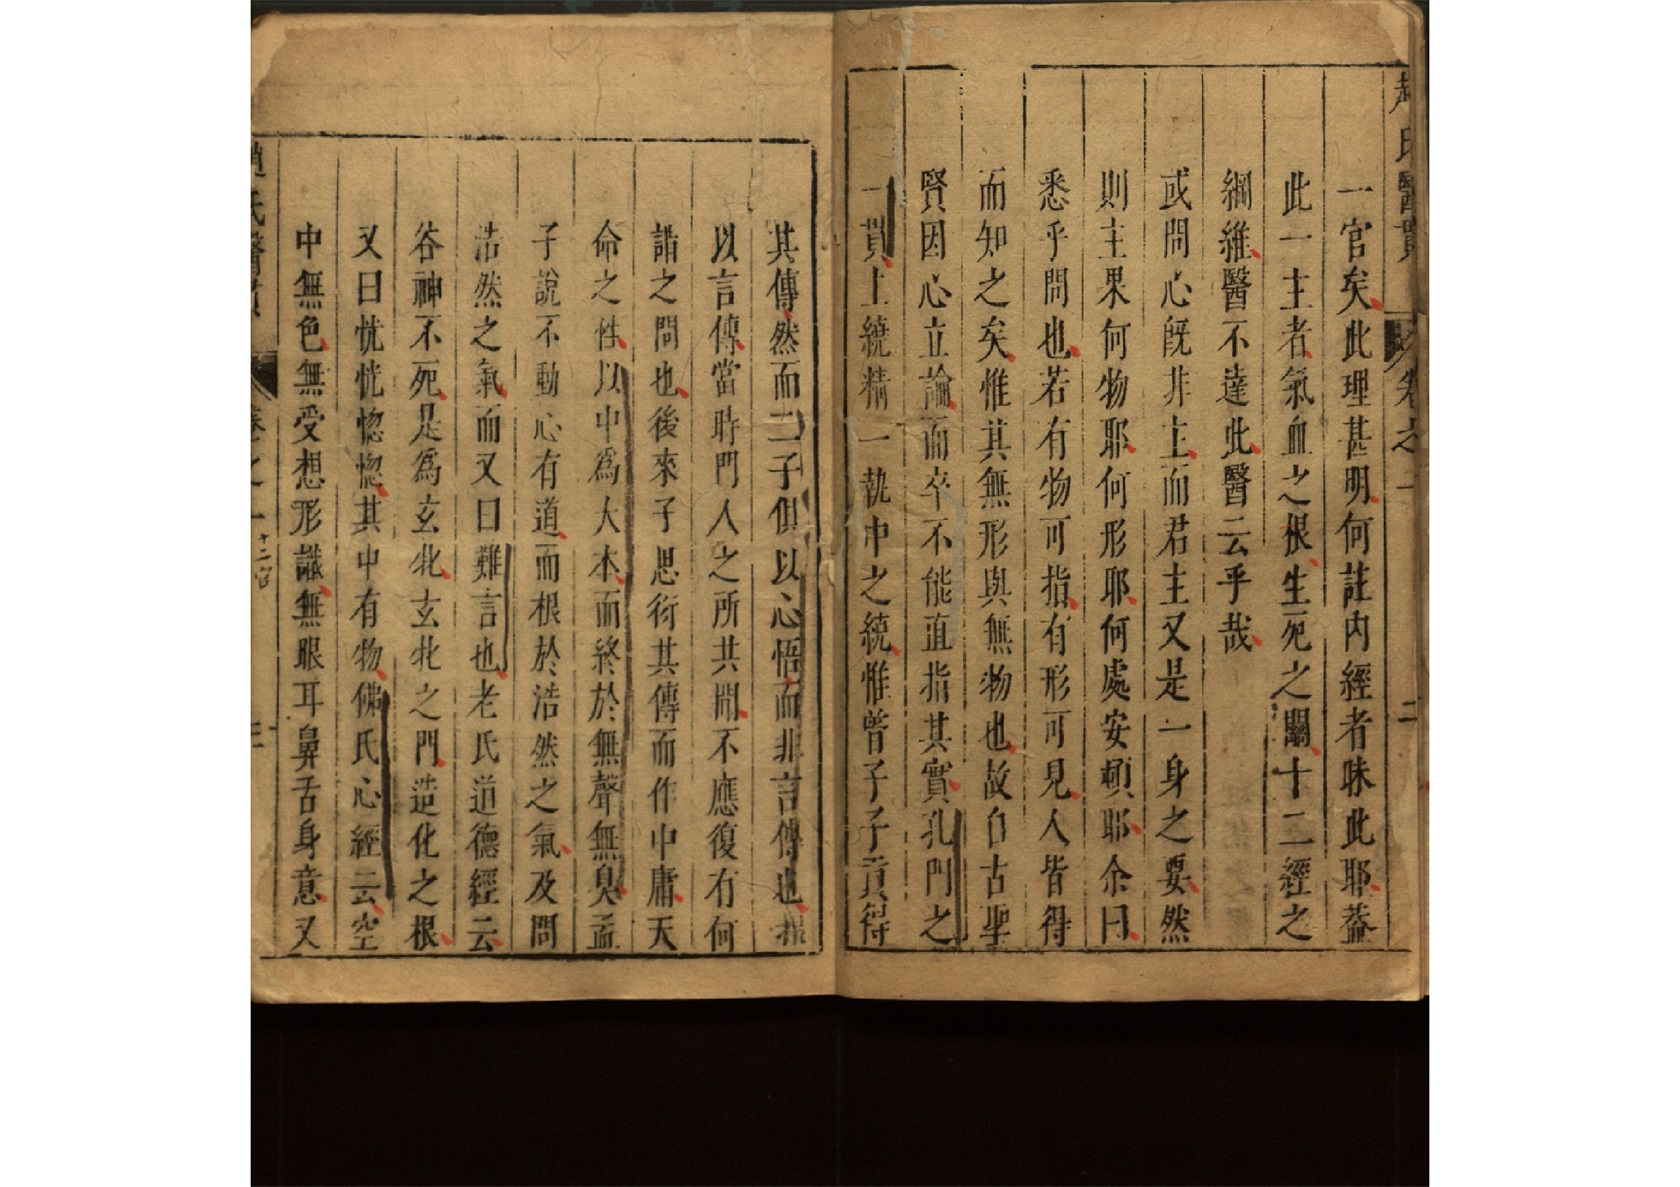 趙氏醫貫 卷之一 二
一官矣此理甚明何註內經者昧此耶蓋
此一主者氣血之根生死之關十二經之
綱維醫不達此醫云乎哉
或問心既非主而君主又是一身之要然
則主果何物耶何形耶何處安頓耶余曰
悉乎問也若有物可指有形可見人皆得
而知之矣惟其無形與無物也故自古聖
賢因心立論而卒不能直指其實孔門之
一貫上繞精一執中之統惟曾子子貢得
其傳然而二子俱以心悟而非言傳也若
以言傳當時門人之所共聞不應復有何
謂之問也後來子思衍其傳而作中庸天
命之性以中為大本而終於無聲無臭孟
子說不動心有道而根於浩然之氣及問
浩然之氣而又曰難言也老氏道德經云
谷神不死是為玄牝玄牝之門造化之根
又曰恍恍惚惚其中有物佛氏心經云空
中無色無受想形識無眼耳鼻舌身意又
趙氏醫貫 卷之一